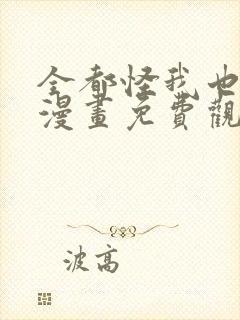 全都怪我也
漫畫免費觀
波高